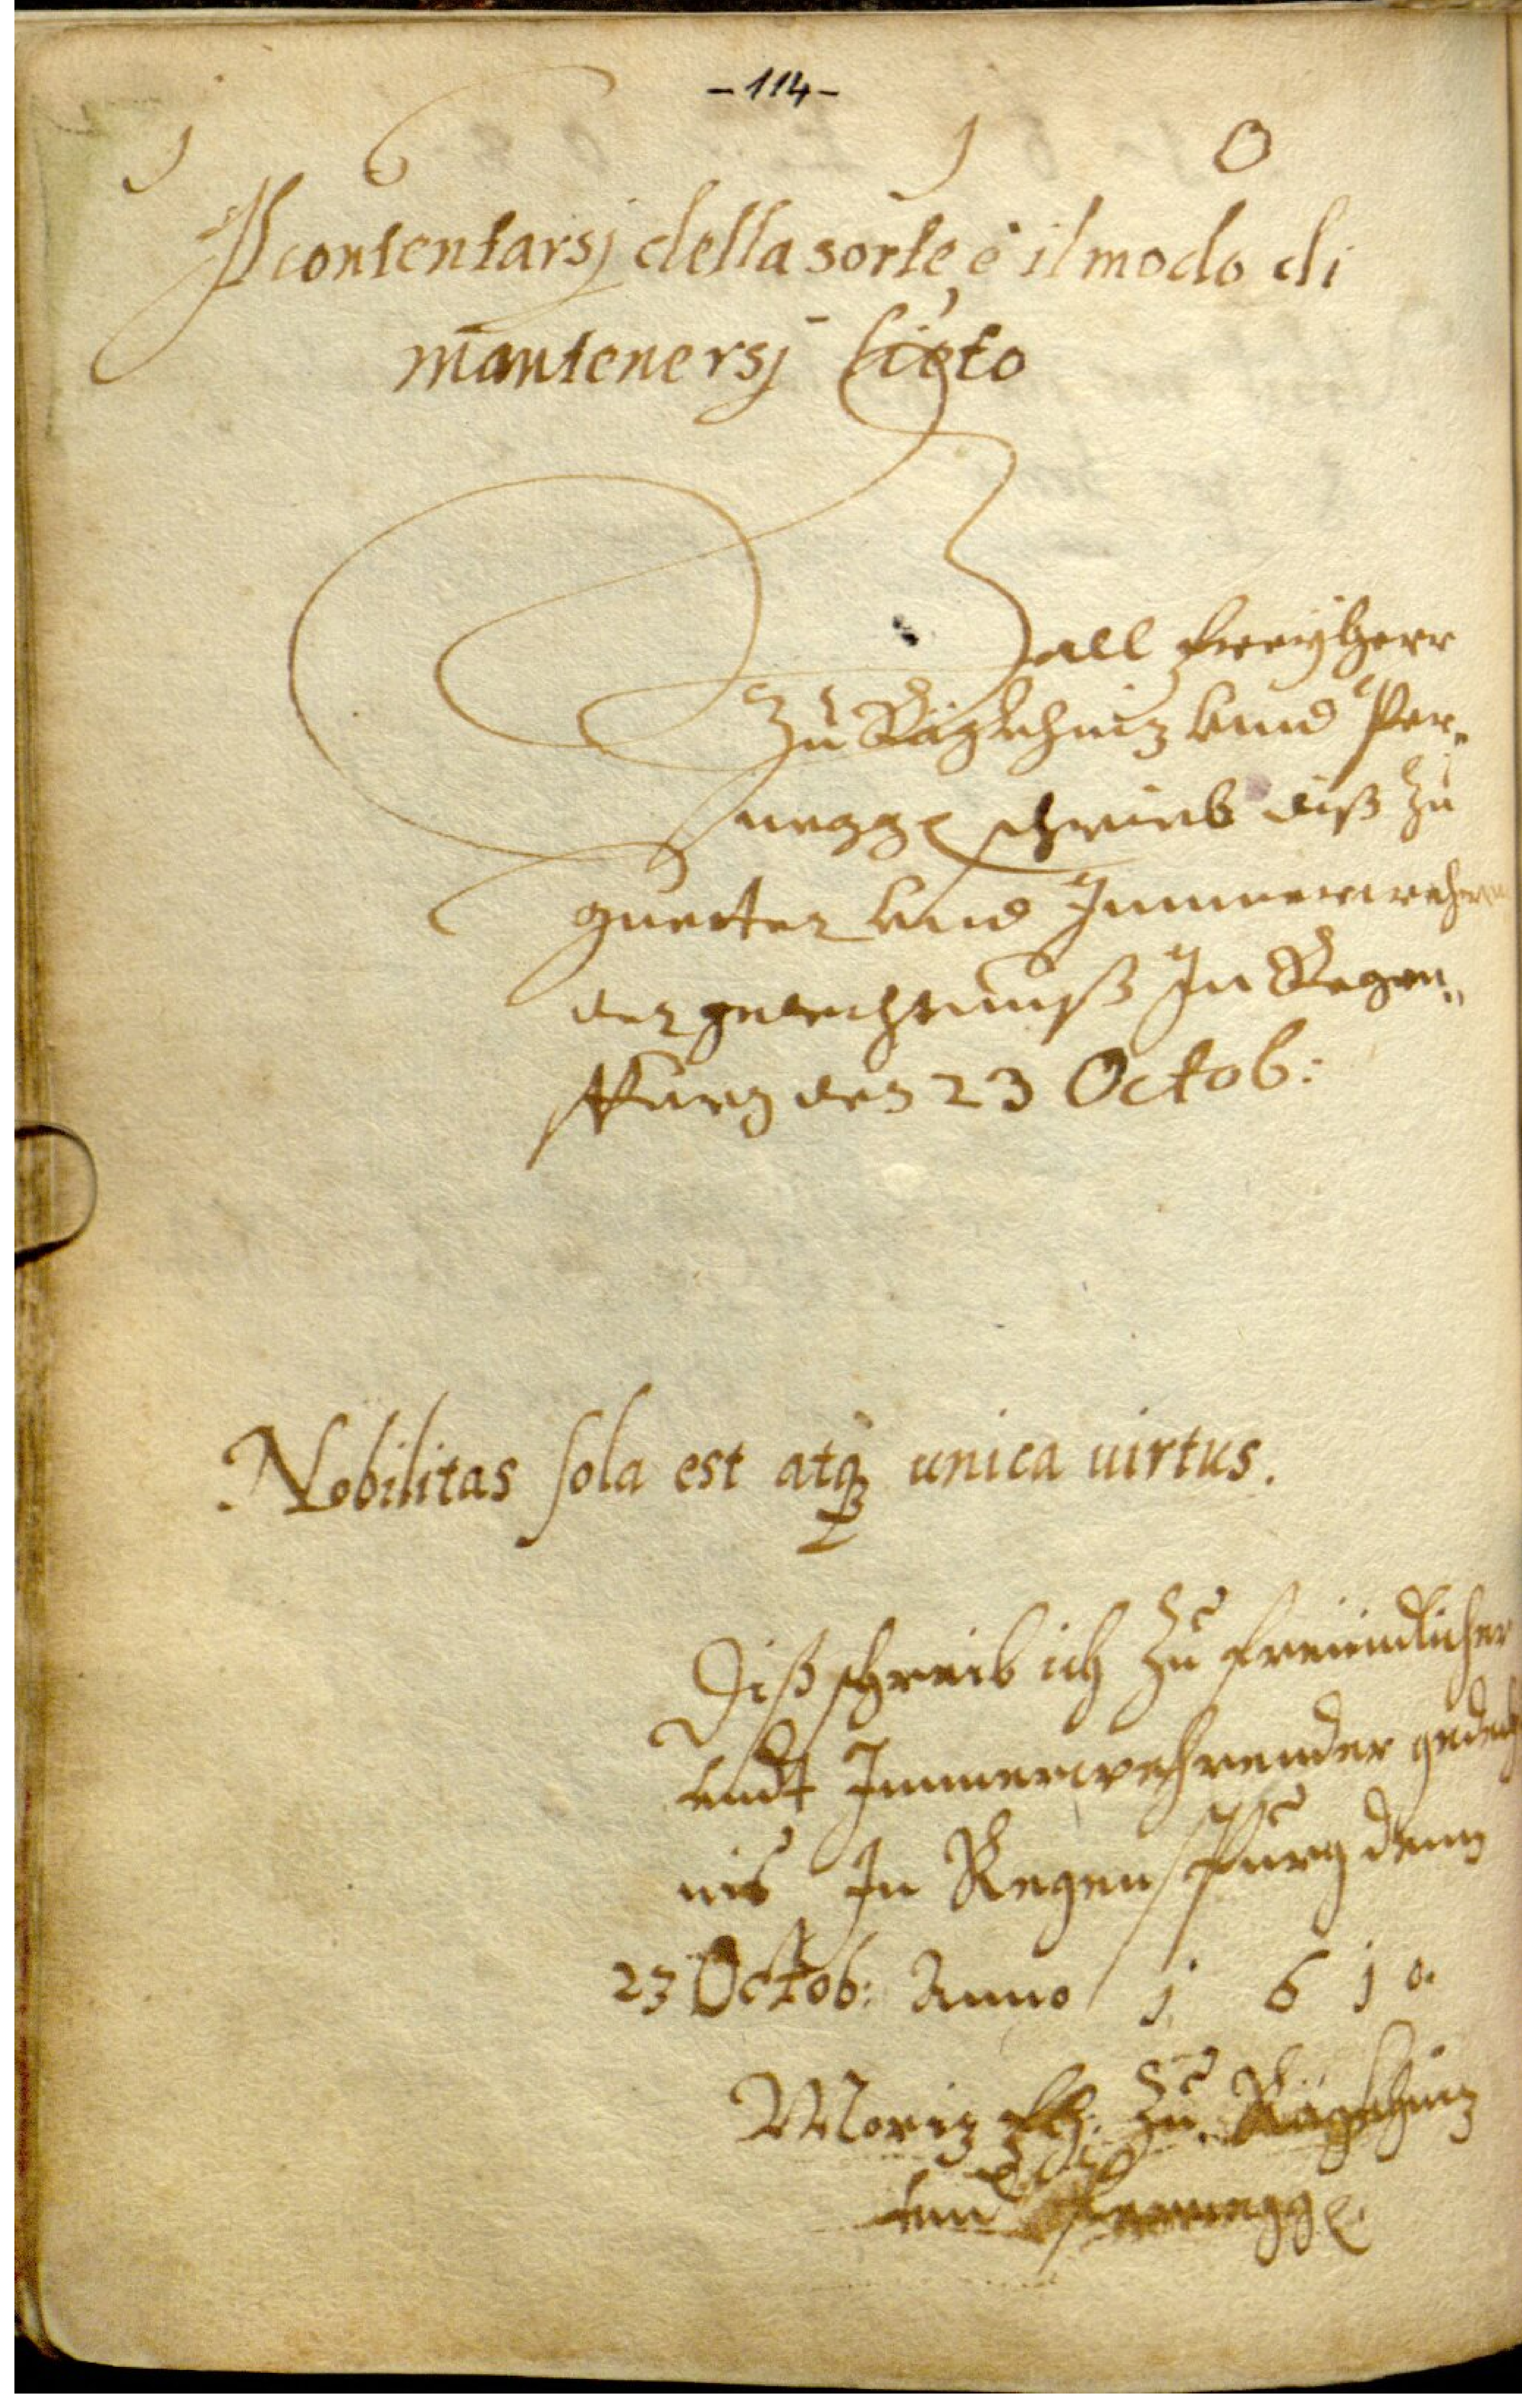 -114-
1 6 1 0
Il contentarsj della sorte, è il modo di
mantenersj lieto
Gall Freyherr
Zu Rägkhniz vnnd Per„
negg schrieb diß Zu
guetter vnd Immerwehren
der gedechtnuß In Regen„
spurg den 23 Octob:
Nobilitas sola est atq unica uirtus.
Diß schreib ich Zu freündlicher
vndt Immerwehrender gedech
nis In Regenspurg denn
23 Octob: Anno 1 6 1 0.
Moriz Fh: Zu Rägkhniz
vnd Pernegg